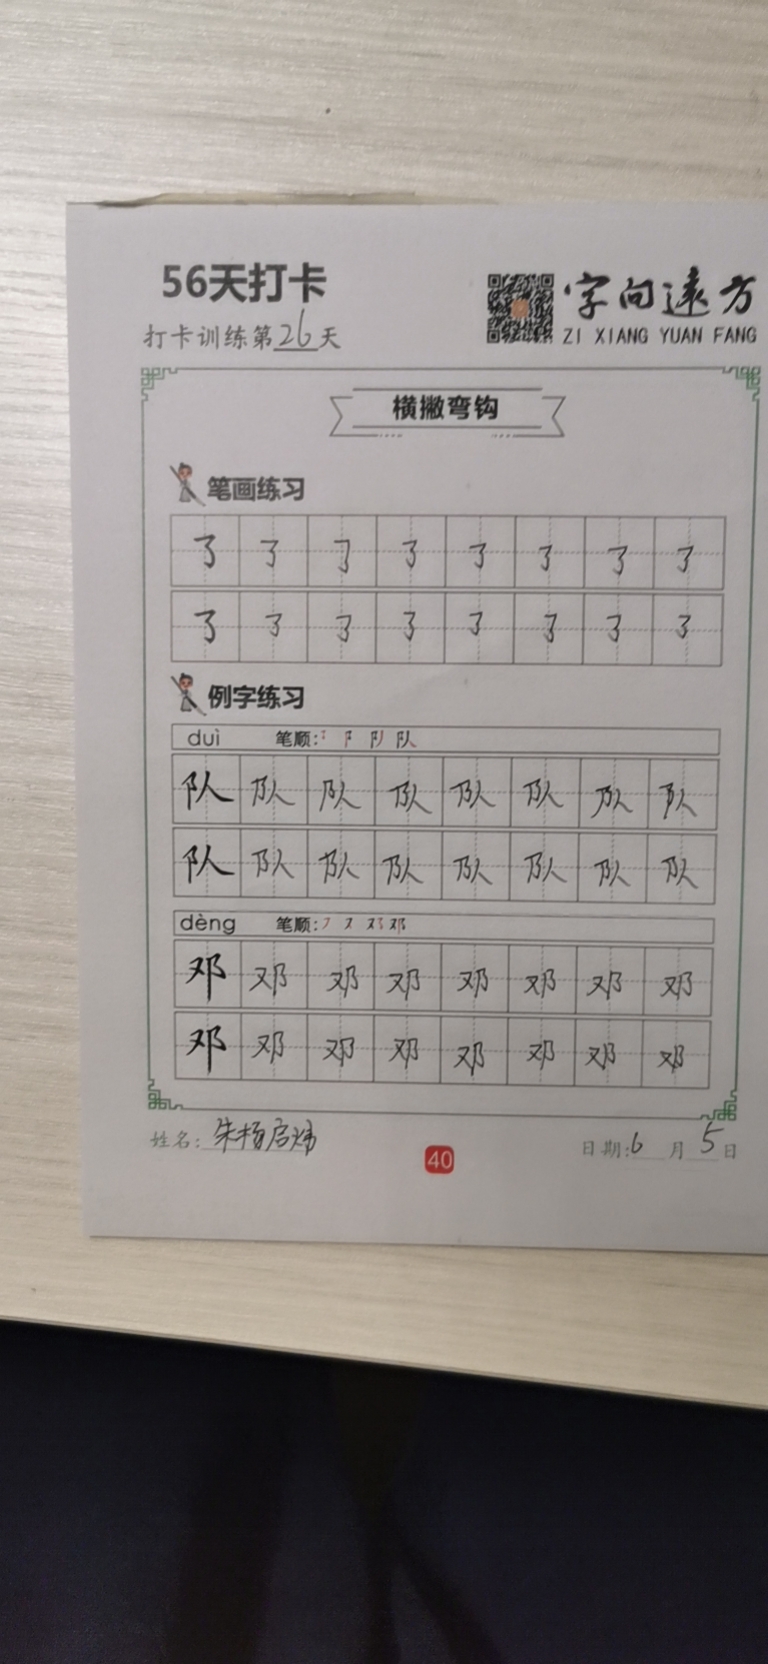 56天打卡
打卡训练第26天
字向远方
ZI XIANG YUAN FANG
横撇弯钩
笔画练习
㇌ ㇌ ㇌ ㇌ ㇌ ㇌ ㇌ ㇌
㇌ ㇌ ㇌ ㇌ ㇌ ㇌ ㇌ ㇌
例字练习
duì 笔顺: ㇌ 阝 队 队
队 队 队 队 队 队 队 队
队 队 队 队 队 队 队 队
dèng 笔顺: ㇇ 又 邓 邓
邓 邓 邓 邓 邓 邓 邓 邓
邓 邓 邓 邓 邓 邓 邓 邓
姓名: 朱杨启炜
40
日期: 6 月 5 日